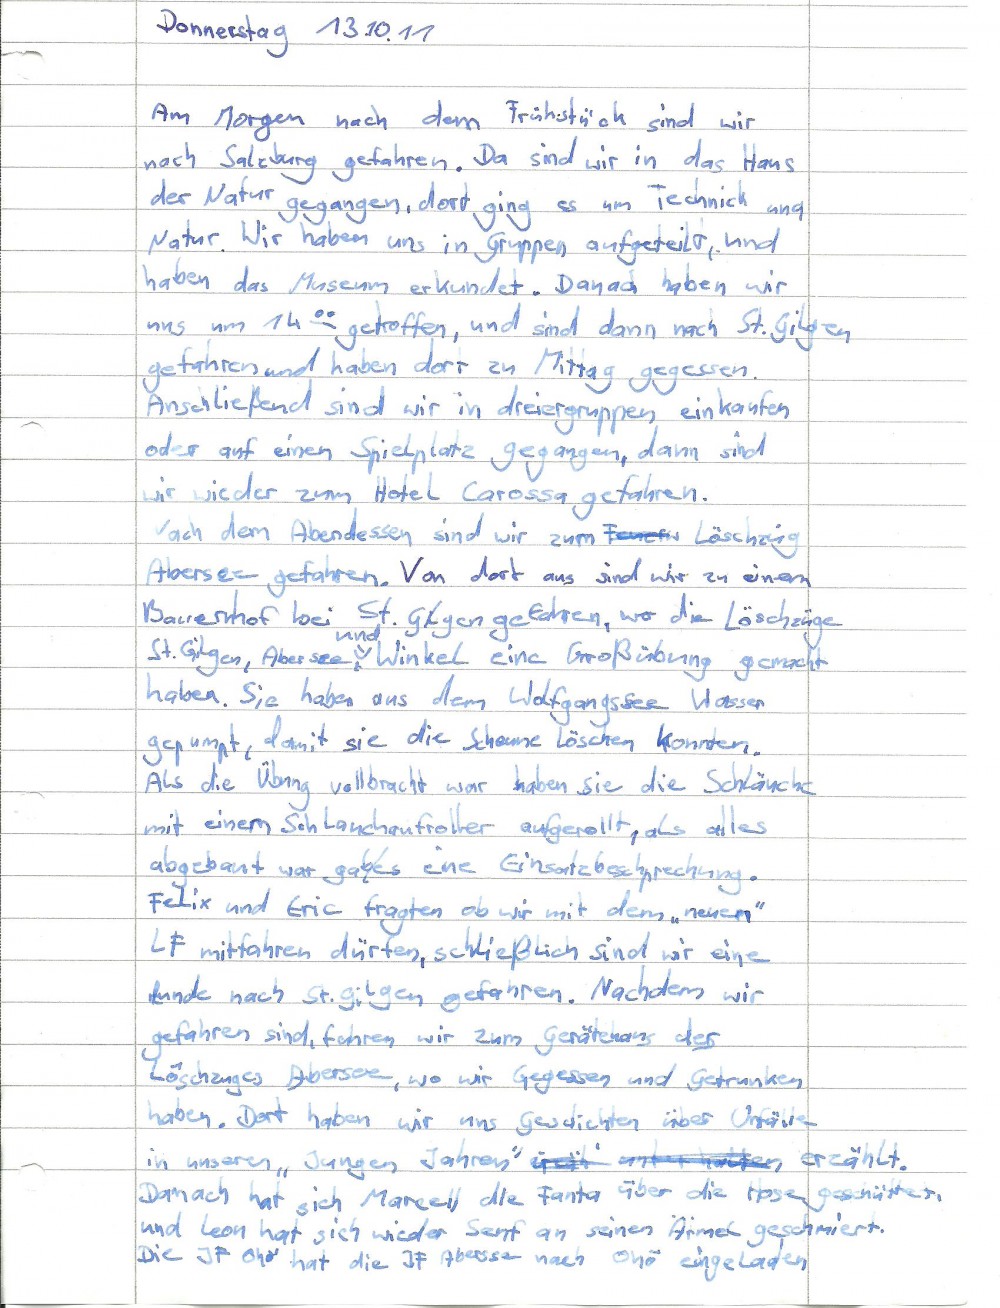 Donnerstag 13.10.11
Am Morgen nach dem Frühstück sind wir
nach Salzburg gefahren. Da sind wir in das Haus
der Natur gegangen, dort ging es um Technick und
Natur. Wir haben uns in Gruppen aufgeteilt, und
haben das Museum erkundet. Danach haben wir
uns um 14 00 getroffen, und sind dann nach St. Gilgen
gefahren und haben dort zu Mittag gegessen.
Anschließend sind wir in dreiergruppen einkaufen
oder auf einen Spielplatz gegangen, dann sind
wir wieder zum Hotel Carossa gefahren.
Nach dem Abendessen sind wir zum Löschzug
Abersee gefahren. Von dort aus sind wir zu einem
Bauernhof bei St. Gilgen gefahren, wo die Löschzüge
St. Gilgen, Abersee, und Winkel eine Großübung gemacht
haben. Sie haben aus dem Wolfgangssee Wasser
gepumpt, damit sie die Scheune Löschen konnten.
Als die Übung vollbracht war haben sie die Schläuche
mit einem Schlauchaufroller aufgerollt, als alles
abgebaut war gab es eine Einsatzbeschprechung.
Felix und Eric fragten ob wir mit dem „neuem"
LF mitfahren dürfen, schließlich sind wir eine
Runde nach St. Gilgen gefahren. Nachdem wir
gefahren sind, fuhren wir zum Gerätehaus des
Löschzuges Abersee, wo wir Gegessen und Getrunken
haben. Dort haben wir uns Geschichten über Unfälle
in unseren „Jungen Jahren" erzählt.
Danach hat sich Marcell die Fanta über die Hose geschüttet,
und Leon hat sich wieder Senf an seinen Ärmel geschmiert.
Die JF Ohö hat die JF Abersee nach Ohö eingeladen